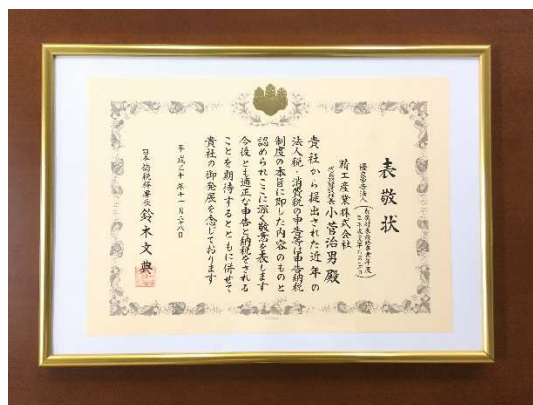 表敬状
優良申告法人
精工産業株式会社
小菅治男 殿
貴社から提出された近年の
法人税・消費税の申告等は申告納税
制度の本旨に即した内容のものと
認められここに深く敬意を表します
今後とも適正な申告と納税をされる
ことを期待するとともに併せて
貴社の御発展を念じております
平成三十年十一月二十八日
鈴木文典